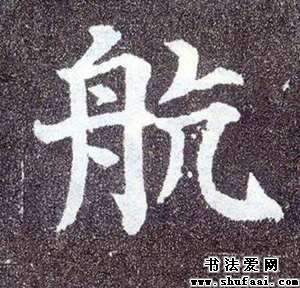 航
书法爱网
www.shufaai.com